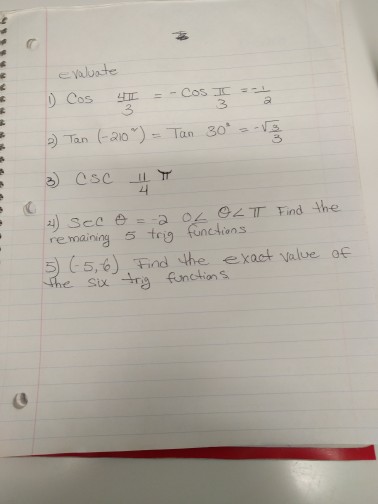 Evaluate
1) Cos 4π/3 = - Cos π/3 = -1/2
2) Tan (-210°) = Tan 30° = -√3/3
3) CSC 11/4 π
4) Sec θ = -2 0< θ<π Find the
remaining 5 trig functions
5) (-5,-6) Find the exact value of
the six trig functions